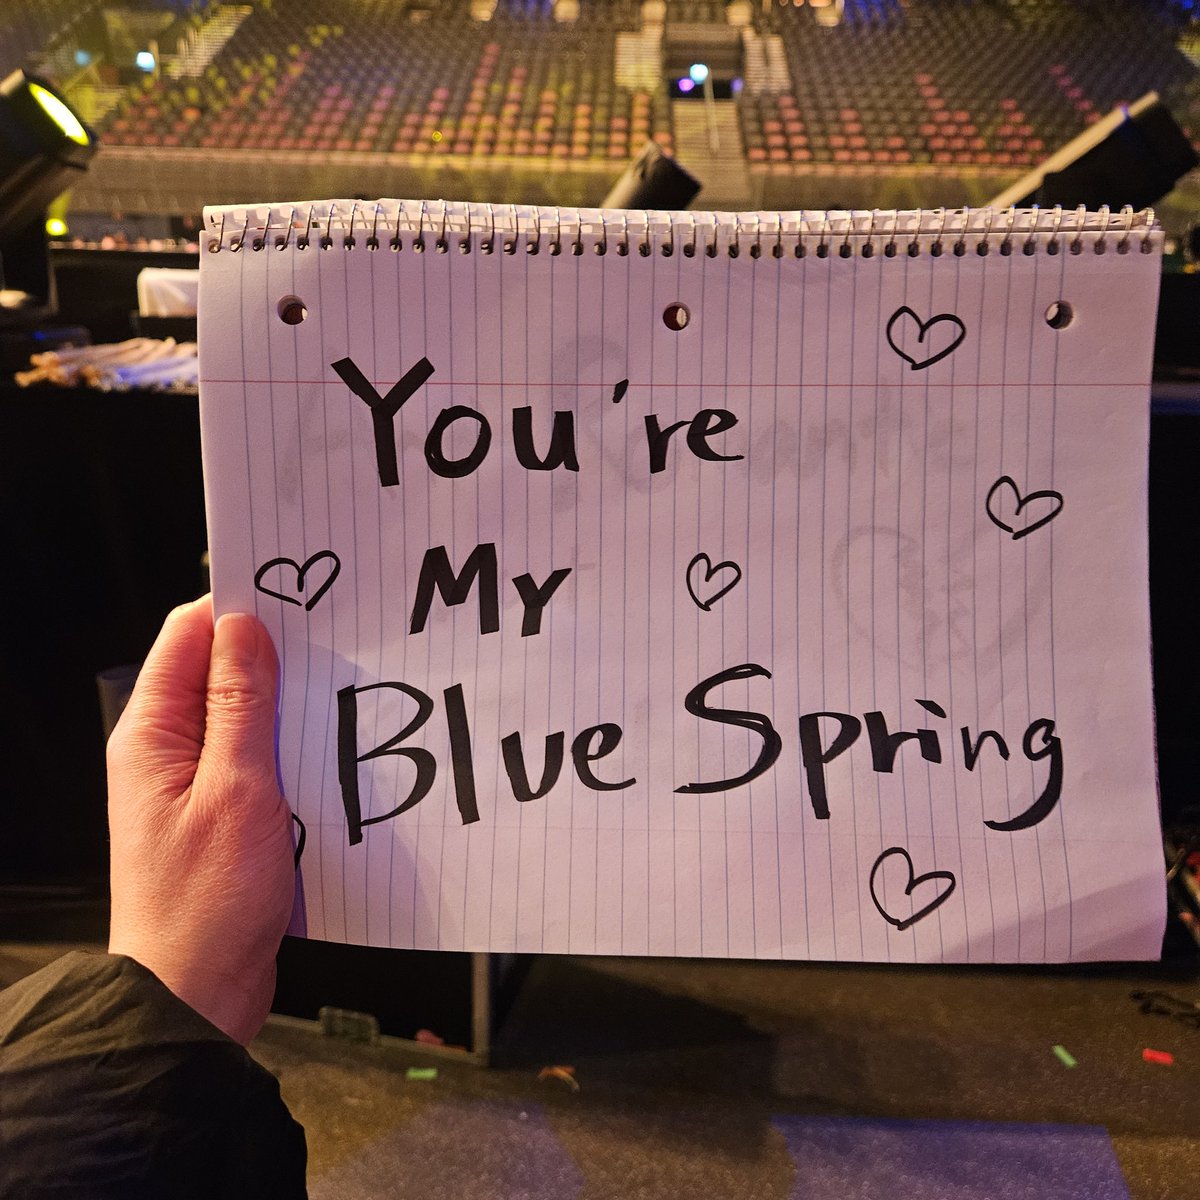 You're
My
Blue Spring